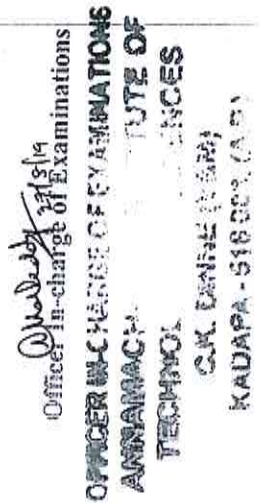 27/3/19
Officer in-charge of Examinations
OFFICER IN-CHARGE OF EXAMINATIONS
ANNAMACH TUTE OF
TECHNOL NCES
C.K. DINNE (V&M)
KADAPA - 516 003. (A.P.)